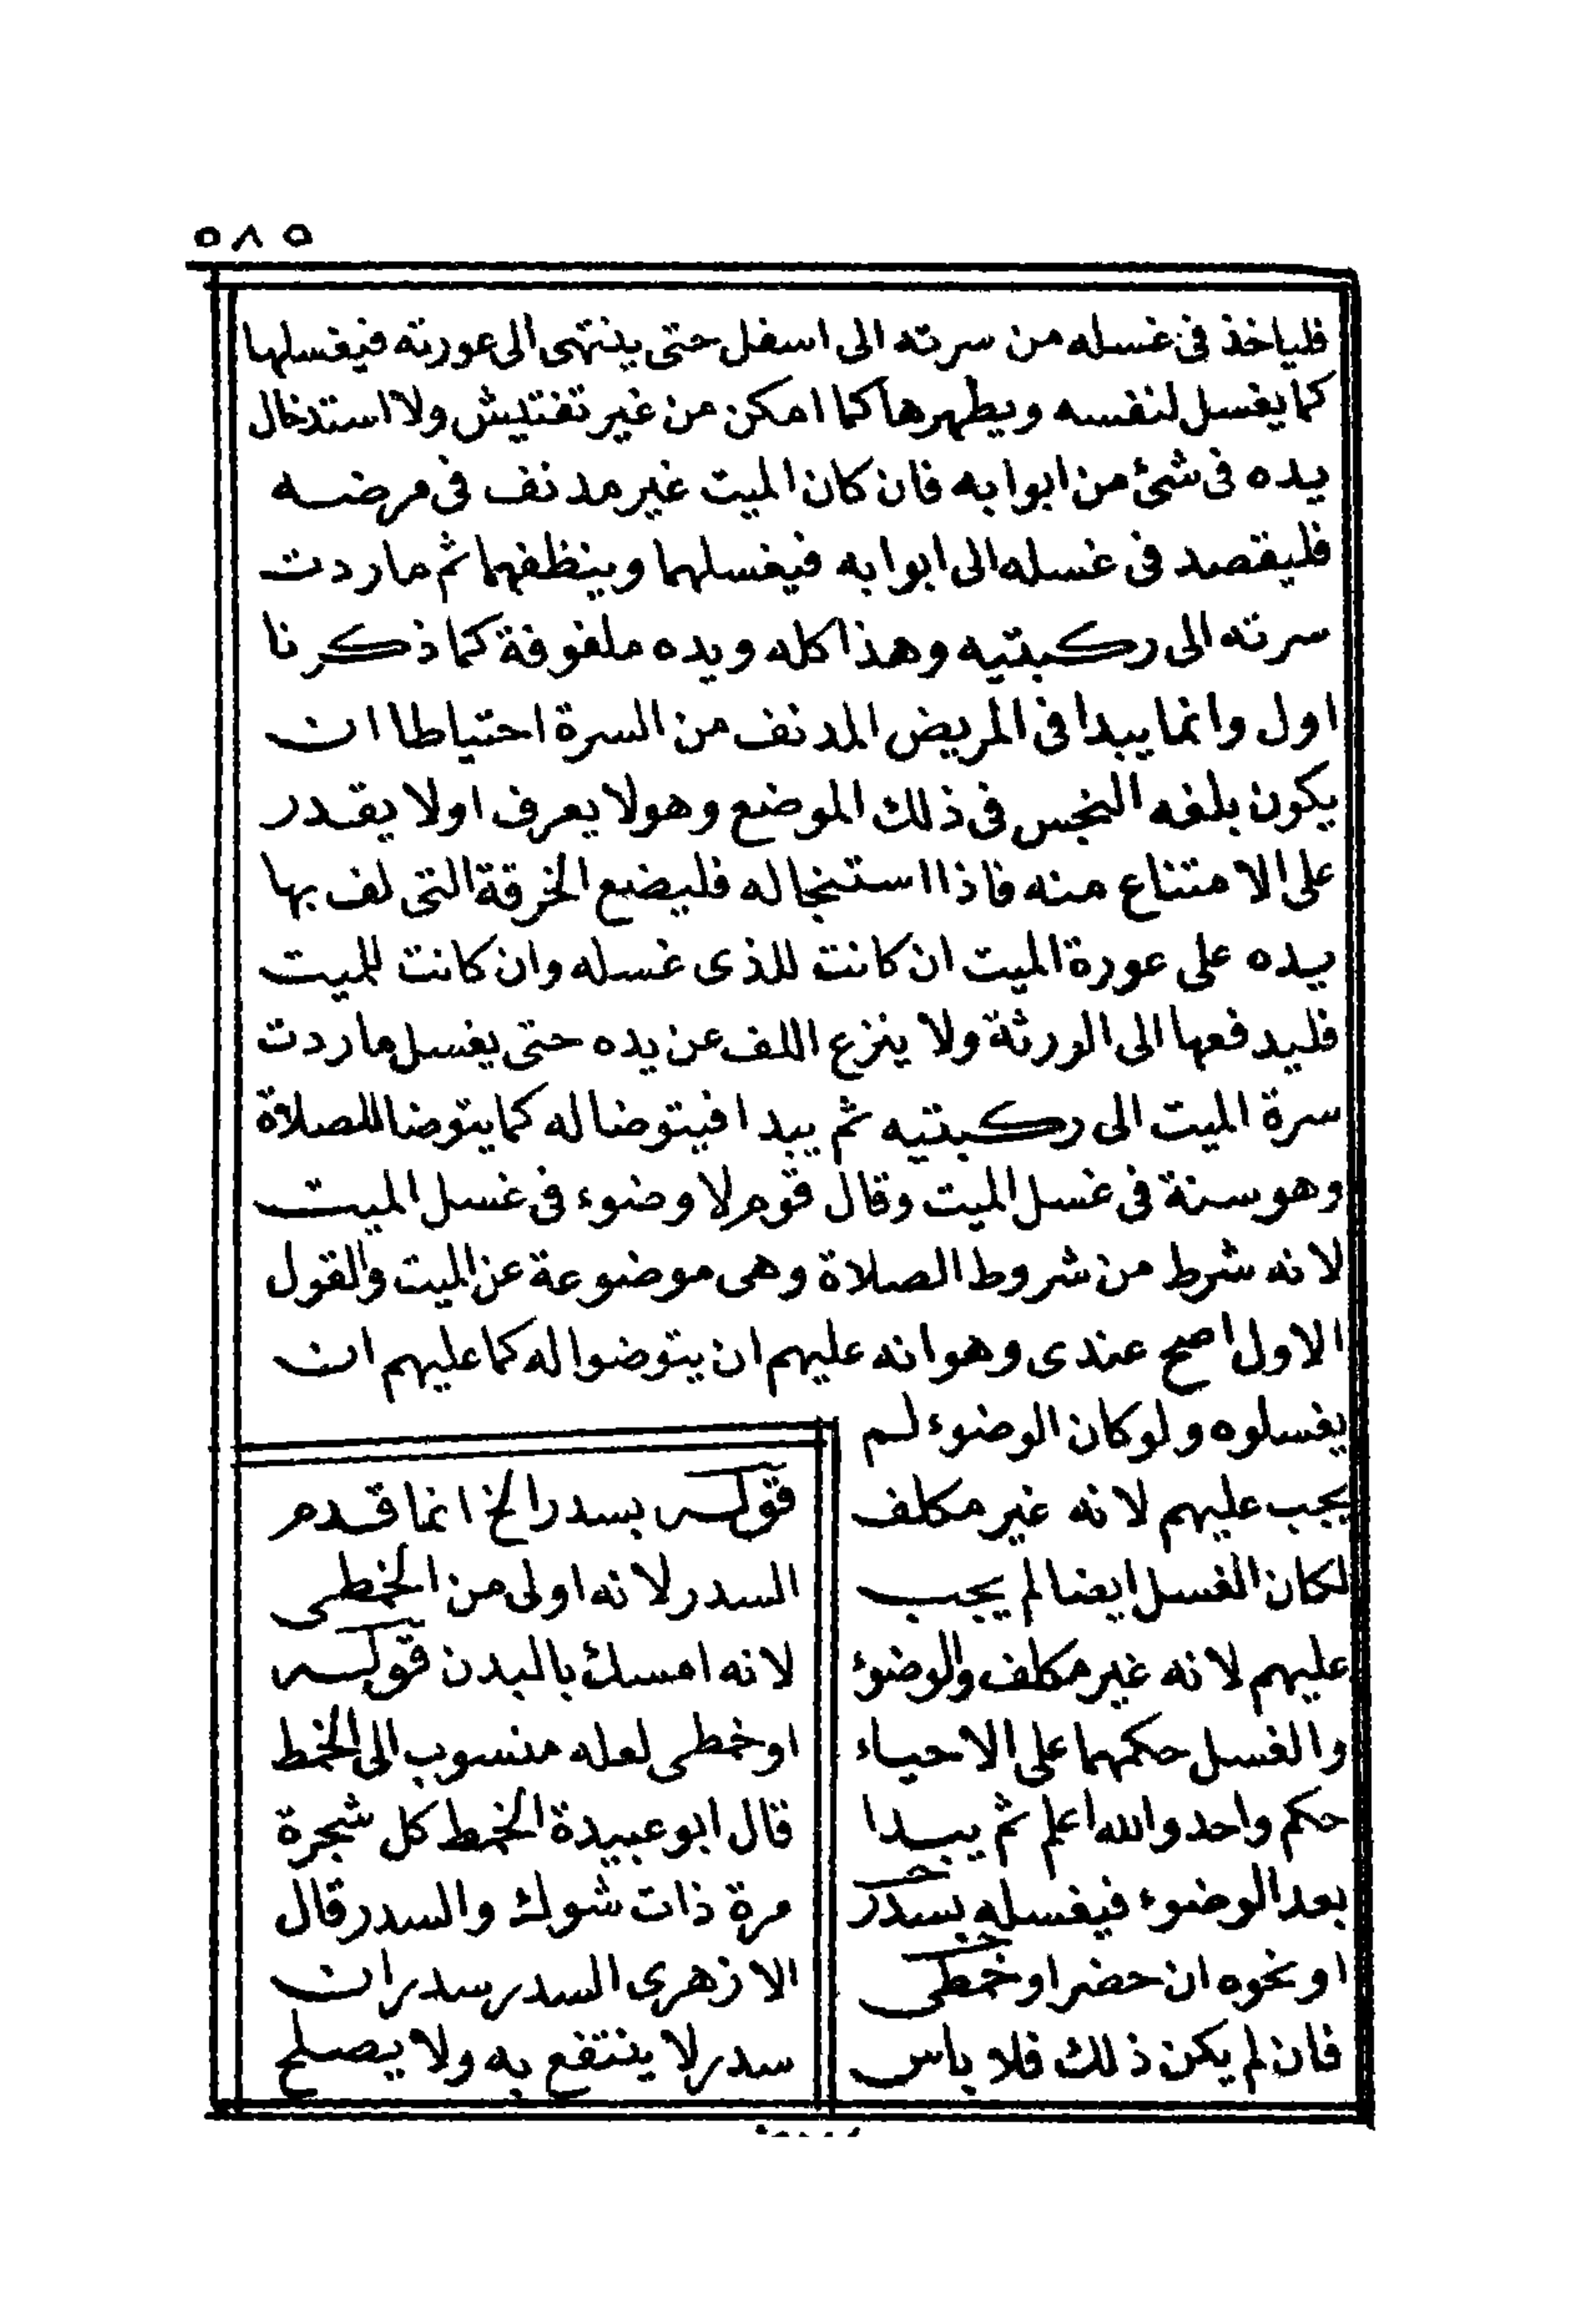 ٥٨٥
فلياخذ فى غسله من سرته الى اسفل حتى ينتهى الى عورته فيغسلها
كما يغسل لنفسه ويطهرها كما امكن من غير تفتيش ولا استدخال
يده فى شئ من ابوابه فان كان الميت غير مدنف فى مرضه
فليقصد فى غسله الى ابوابه فيغسلهما وينظفهما ثم ماردت
سرته الى ركبتيه وهذا كله ويده ملفوفة كما ذكرنا
اول وانما يبدا فى المريض المدنف من السرة احتياطا ان
يكون بلغه النجس فى ذلك الموضع وهو لا يعرف او لا يقدر
على الامتناع منه فاذا استنجا له فليضع الخرقة التى لف بها
يده على عورة الميت ان كانت للذى غسله وان كانت للميت
فليدفعها الى الورثة ولا ينزع اللف عن يده حتى يغسل ماردت
سرة الميت الى ركبتيه ثم يبدا فيتوضا له كما يتوضا للصلاة
وهو سنة فى غسل الميت وقال قوم لا وضوء فى غسل الميت
لانه شرط من شروط الصلاة وهى موضوعة عن الميت والقول
الاول اصح عندى وهو انه عليهم ان يتوضوا له كما عليهم ان
يغسلوه ولو كان الوضوء لم
يجب عليهم لانه غير مكلف
لكان الغسل ايضا لم يجب
عليهم لانه غير مكلف والوضوء
والغسل حكمهما على الاحياء
حكم واحد والله اعلم ثم يبدا
بعد الوضوء فيغسله بسدر
او نحوه ان حضر او خمطى
فان لم يكن ذلك فلا باس
قوله بسدر الخ انما قدم
السدر لانه اولى من الخمطى
لانه امسك بالبدن قوله
او خمطى لعله منسوب الى الخمط
قال ابو عبيدة الخمط كل شجرة
مرة ذات شوك والسدر قال
الازهرى السدر سدران
سدر لا ينتفع به ولا يصلح